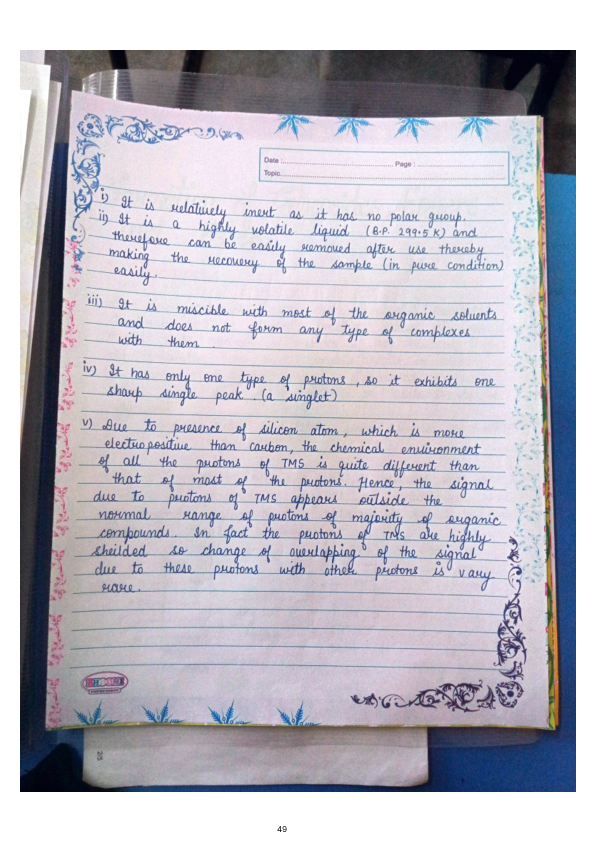 Date : Page :
Topic
i) It is relatively inert as it has no polar group.
ii) It is a highly volatile liquid (B.P. 299.5 K) and
therefore can be easily removed after use thereby
making the recovery of the sample (in pure condition)
easily.
iii) It is miscible with most of the organic solvents
and does not form any type of complexes
with them
iv) It has only one type of protons, so it exhibits one
sharp single peak. (a singlet)
v) Due to presence of silicon atom, which is more
electropositive than carbon, the chemical environment
of all the protons of TMS is quite different than
that of most of the protons. Hence, the signal
due to protons of TMS appears outside the
normal range of protons of majority of organic
compounds. In fact the protons of TMS are highly
sheilded so change of overlapping of the signal
due to these protons with other protons is vary
rare.
25
49